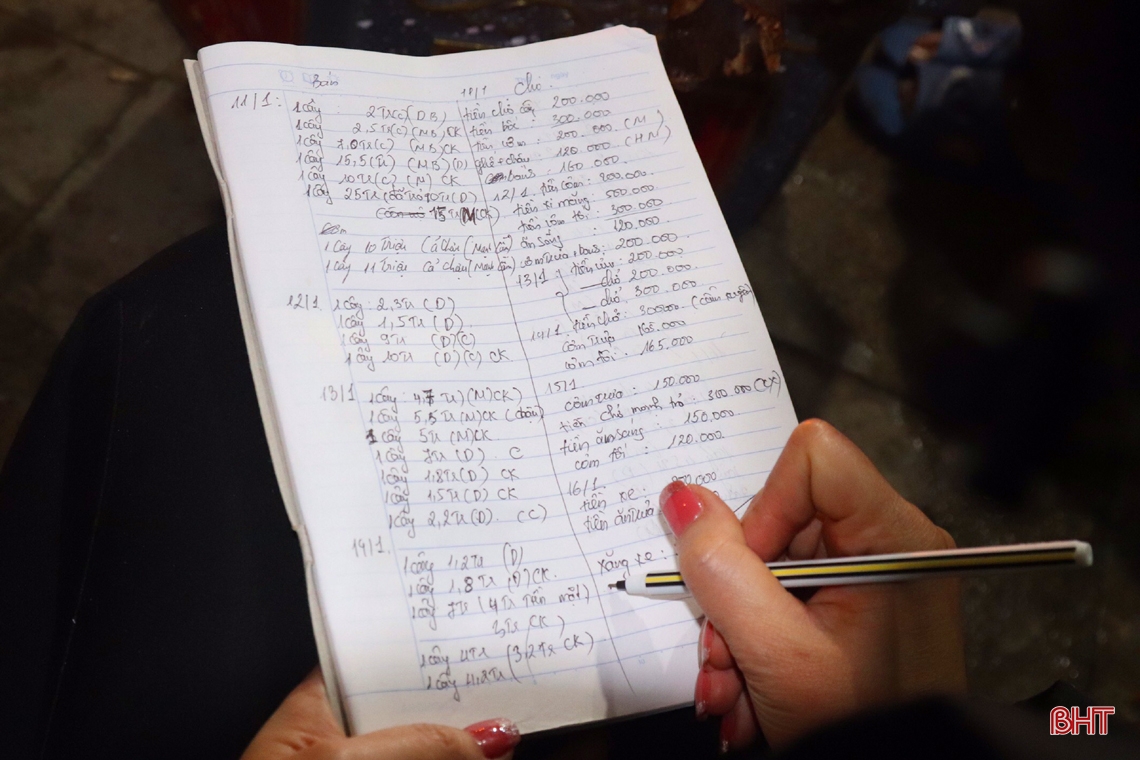 Bán
11/1: 1 cây : 2Tr(c)(DB)
1 cây 2.5Tr(c)(MB)CK
1 cây 7,0Tr(c) (MB)CK
1 cây 15,5(Tr) (MB)(D)
1 cây 10Tr(c) (M) CK
1 cây 25Tr (đã trả 10Tr(D)
15Tr(M)CK)
1 cây 10 Triệu Cả chậu (Mạnh
1 cây 11 Triệu Cả chậu (Mạnh
12/1 1 cây : 2,3Tr (D)
1 cây : 1,5Tr (D)
1 cây 9Tr (D)(C)
1 cây 10Tr (D)(C) CK
13/1 1 cây : 4,7 Tr)(M)CK)
1 cây : 5,5Tr(M)CK (chậu)
1 cây 5Tr (M)CK
1 cây 7Tr (D). C
1 cây : 1,8Tr(D) CK
1 cây : 1,5Tr(D) CK
1 cây 2,2Tr(D). (C)
14/1. 1 cây 1,2Tr (D)
1 cây 1,8Tr (D)CK.
1 cây 7Tr (4Tr Tiền mặt)
3Tr CK)
1 cây 4Tr (3,2Tr CK)
1 cây 4,2Tr (
Chở.
tiền chở cây 200.000
tiền bốc : 300.000
tiền cơm : 200.000 (M)
ghế + chậu : 120.000 (HN)
160.000.
12/1. tiền cơm : 200.000.
tiền xi măng : 500.000
tiền cơm tối : 300.000
ăn sáng : 120.000
200.000.
13/1 200.000
chở 200.000.
chở. 300.000
14/1. tiền chở : 300000
cơm trưa 165.000
cơm tối : 165.000
15/1
cơm trưa : 150.000
tiền chở mạnh trả : 300.000
tiền ăn sáng : 150.000
cơm tối : 120.000
16/1.
tiền xe :
tiền ăn trưa
xăng xe :
BHT